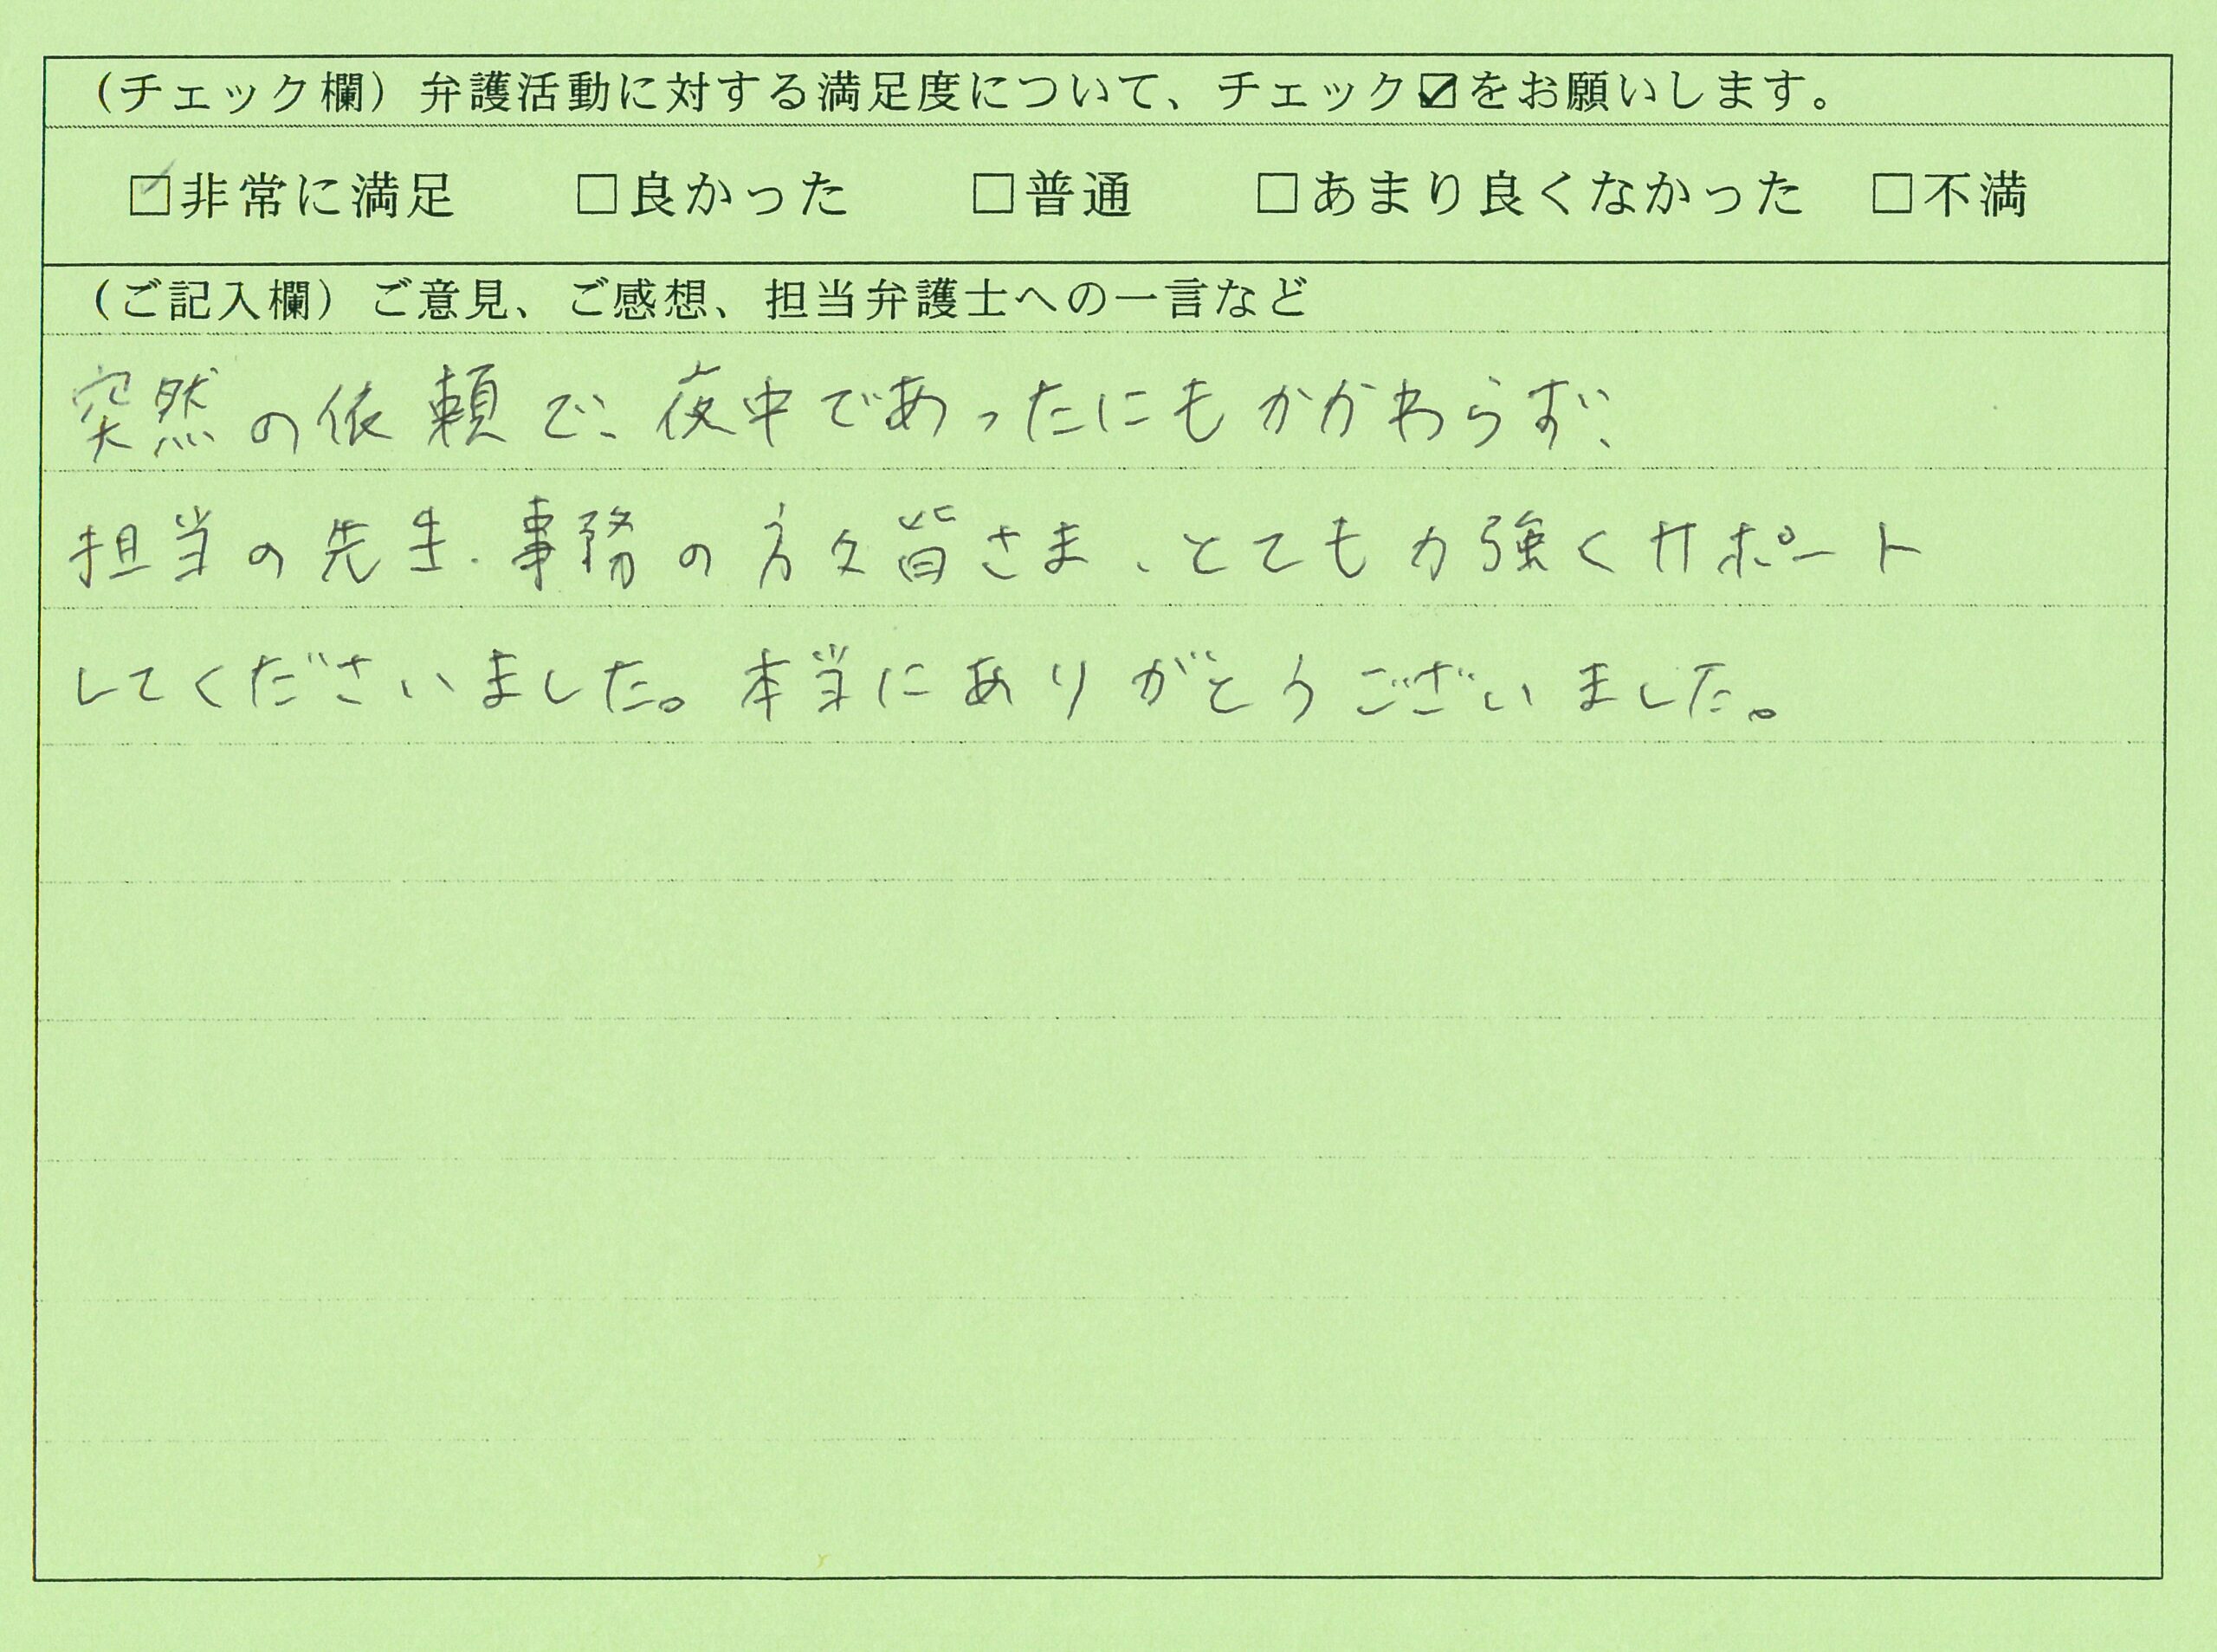 （チェック欄）弁護活動に対する満足度について、チェック☑をお願いします。
☑非常に満足　□良かった　□普通　□あまり良くなかった　□不満
（ご記入欄）ご意見、ご感想、担当弁護士への一言など
突然の依頼で、夜中であったにもかかわらず、
担当の先生・事務の方々皆さま、とても力強くサポート
してくださいました。本当にありがとうございました。